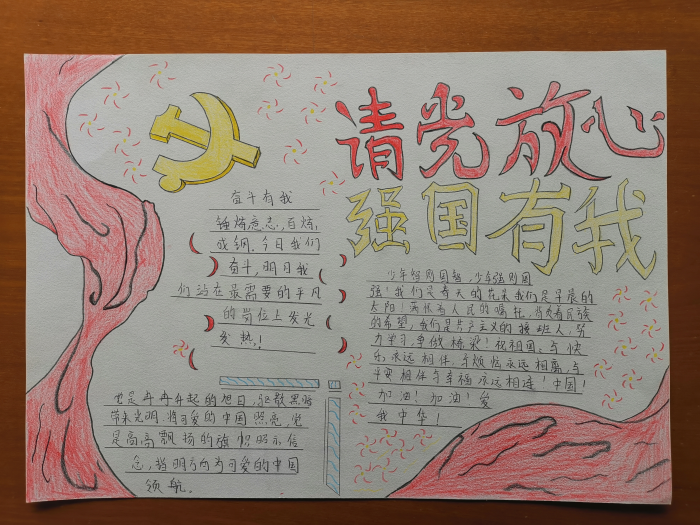 请党放心
强国有我
奋斗有我
锤炼意志,百炼
成钢。今日我们
奋斗,明日我
们站在最需要的平凡
的岗位上发光
发热!
少年智则国智,少年强则国
强!我们是春天的花朵我们是早晨的
太阳!满怀着人民的嘱托,肩负着民族
的希望,我们是共产主义的接班人,努
力学习,争做栋梁!祝祖国:与快
乐永远相伴,与烦恼永远相离,与
平安相伴与幸福永远相连!中国!
加油!加油!爱
我中华!
也是冉冉升起的旭日,驱散黑暗
带来光明.将可爱的中国照亮,党
是高高飘扬的旗帜昭示信
念,指明方向为可爱的中国
领航.